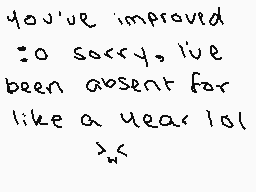 you've improved
:o sorry, i've
been absent for
like a year lol
>w<